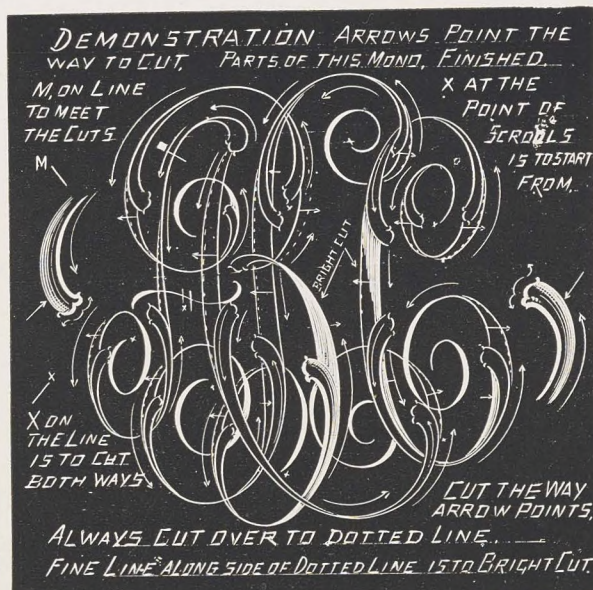 DEMONSTRATION ARROWS POINT THE
WAY TO CUT, PARTS OF THIS MONO, FINISHED.
M, ON LINE
TO MEET
THE CUTS
M
X AT THE
POINT OF
SCROLLS
IS TO START
FROM.
BRIGHT CUT
X
X ON
THE LINE
IS TO CUT
BOTH WAYS.
CUT THE WAY
ARROW POINTS,
ALWAYS CUT OVER TO DOTTED LINE.
FINE LINE ALONG SIDE OF DOTTED LINE IS TO BRIGHT CUT.